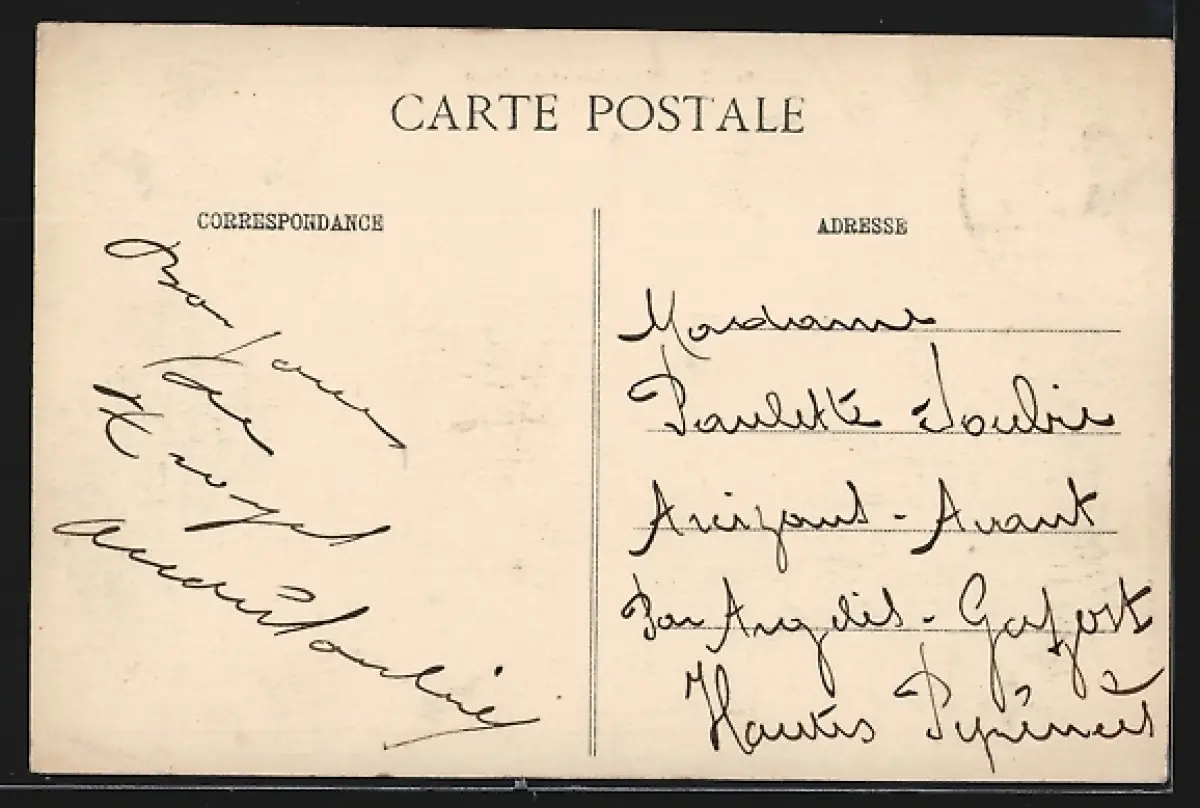 CARTE POSTALE
CORRESPONDANCE
ADRESSE
Bonjour
de
André Soubie
Madame
Paulette Soubie
Arcizans-Avant
Par Argelès-Gazost
Hautes Pyrénées